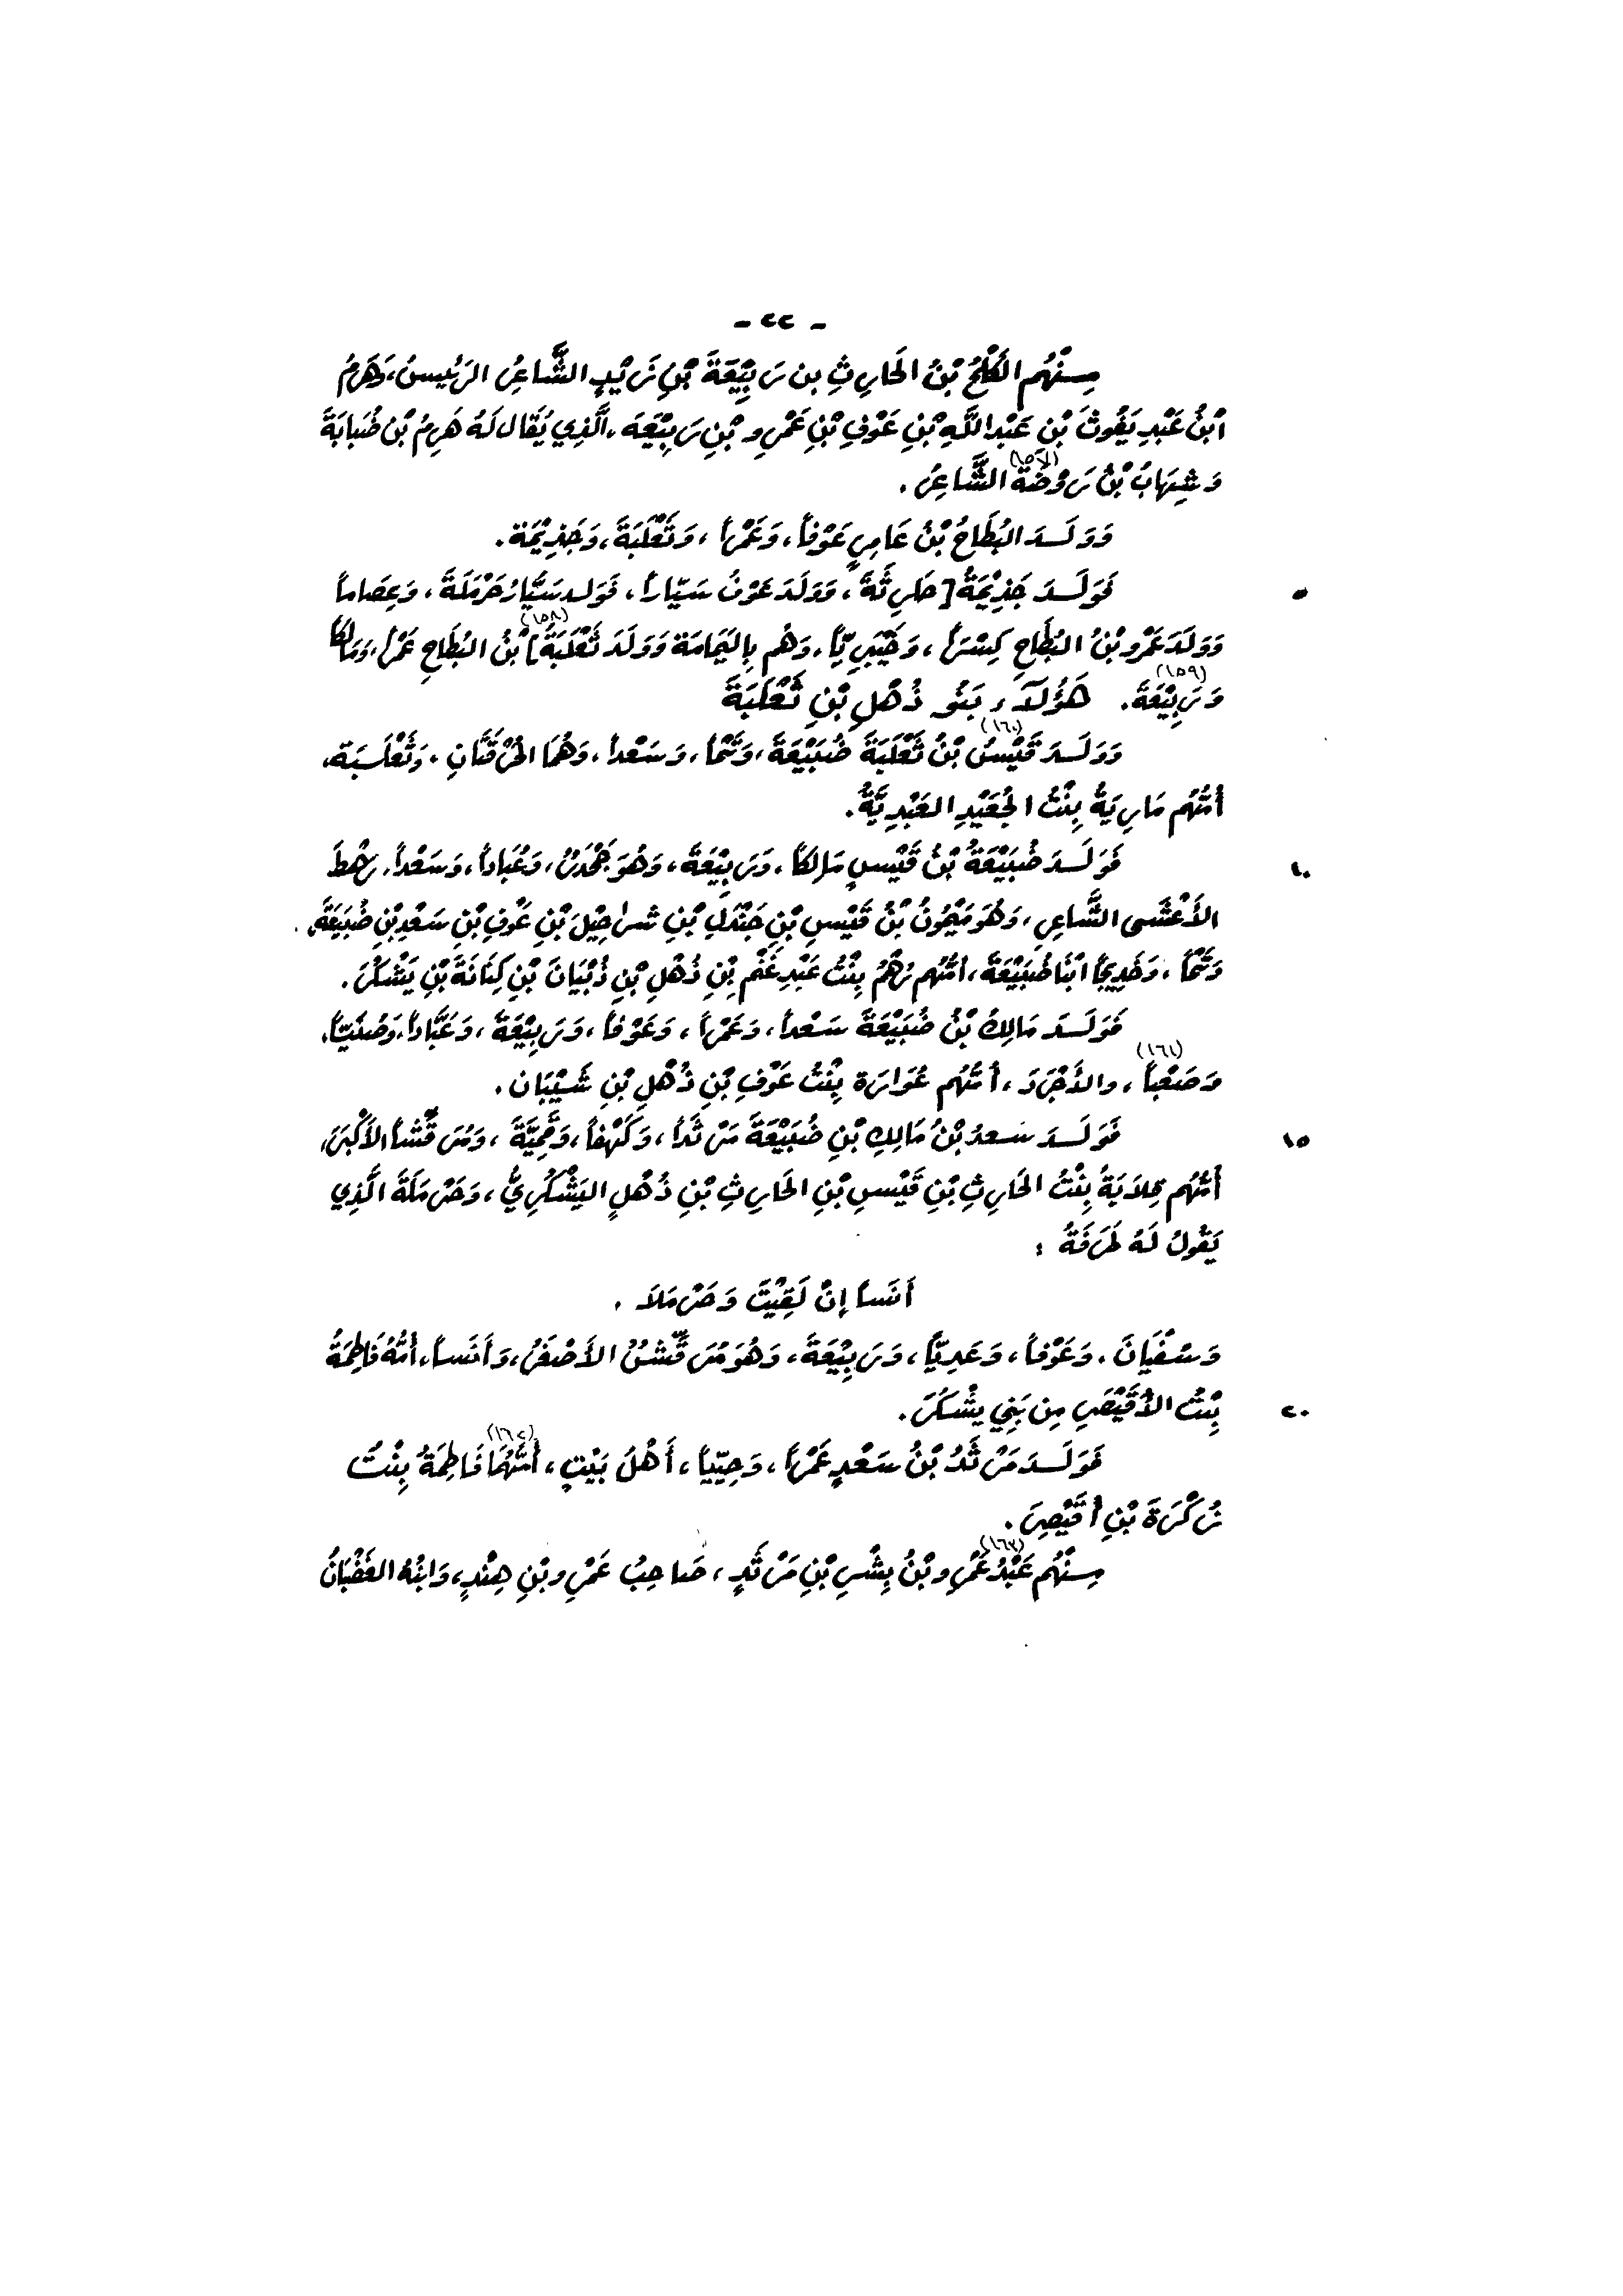 - ٢٢ -
مِنْهُم الكَلْحُ بْنُ الحَارِثِ بن رَبِيْعَةَ بْنِ زَيْدٍ الشَّاعِرُ الرَئِيسُ، وَهَرِمُ
ابْنُ عَبْدِ يَغُوثَ بْنِ عَبْدِ اللَّهِ بْنِ عَوْفِ بْنِ عَمْرِو بْنِ رَبِيْعَةَ، الَّذِي يُقَال لَهُ هَرِمُ بْن ضُبَابَةَ
وَشِهَابُ بْنُ رَوْضَةَ (١٥٧) الشَّاعِرُ.
وَوَلَـدَ البُطَاحُ بْنُ عَامِرٍ عَوْفاً، وَعَمْراً، وَثَعْلَبَةَ، وَجَذِيْمَة.
٥ فَوَلَـدَ جَذِيْمَةُ [حَارِثَةَ، وَوَلَدَ عَوْفُ سَيّاراً، فَوَلد سَيَّارُ حَرْمَلَةَ، وَعِصَاماً
وَوَلَدَ عَمْرُو بْنُ البُطَاحِ كِسْرَاً، وَخَيْبَرِيّاً، وَهُم بِاليَمَامَة وَوَلَدَ ثَعْلَبَةُ] (١٥٨) بْنُ البُطَاحِ عَمْراً، وَمَالِكاً
وَرَبِيْعَةَ. (١٥٩) هَؤُلَآءِ بَنُو ذُهْلِ بْنِ ثَعْلَبَةَ
وَوَلَـدَ قَيْسُ بْنُ (١٦٠) ثَعْلَبَةَ ضُبَيْعَةَ، وَتَيْماً، وَسَعْداً، وَهُمَا الحُرْقَتَانِ. وَثَعْلَـبَة،
أُمُّهُم مَارِيَةُ بِنْتُ الجُعَيْدِ العَبْدِيَّةُ.
١٠ فَوَلَـدَ ضُبَيْعَةُ بْنُ قَيْسٍ مَالِكاً، وَرَبِيْعَةَ، وَهُوَ جَحْدَرُ، وَعُبَاداً، وَسَعْداً، رَهْطَ
الأَعْشَى الشَّاعِرِ، وَهُوَ مَيْمُونُ بْنُ قَيْسِ بْنِ جَنْدَلِ بْنِ شراحِيْلَ بْنِ عَوْفِ بْنِ سَعْدِ بْنِ ضُبَيْعَةَ.
وَتَيْماً، وَخَدِيجاً ابْنَا ضُبَيْعَةَ، أُمُّهُم رُهْمُ بِنْتُ عَبْدِ غَنْمِ بِنِ ذُهْلِ بْنِ ذُبْيَانَ بْنِ كِنَانَةَ بْنِ يَشْكُرَ.
فَوَلَـدَ مَالِكُ بْنُ ضُبَيْعَةَ سَعْداً، وَعَمْراً، وَعَوْفاً، وَرَبِيْعَةَ، وَعَبَّاداً، وَضُنَيّاً،
وَصَعْباً (١٦١)، والأَجْرَدَ، أُمُّهُم عُوَارَة بِنْتُ عَوْفِ بْنِ ذُهْلِ بْنِ شَيْبَان.
١٥ فَوَلَـدَ سَعدُ بْنُ مَالِكِ بْنِ ضُبَيْعَةَ مَرْثَداً، وَكَهْفاً، وَقَمِيَّةَ، وَمُرَقِّشاً الأَكْبَرَ،
أُمُّهُم قِلَابَةُ بِنْتُ الحَارِثِ بْنِ قَيْسِ بْنِ الحَارِثِ بْنِ ذُهْلٍ اليَشْكُرِيُّ، وَحَرْمَلَةَ الَّذِي
يَقُولُ لَهُ طَرَفَةُ :
أَنَساً إِنْ لَقِيْتَ وَحَرْمَلَا.
وَسُفْيَانَ، وَعَوْفاً، وَعَدِيّاً، وَرَبِيْعَةَ، وَهُوَ مُرَقِّشُ الأَصْغَرُ، وَأَنَساً، أُمُّهُ فَاطِمَةُ
٢٠ بِنْتُ الأُقَيْصِرِ مِن بَنِي يشْكُرَ.
فَوَلَـدَ مَرْثَدُ بْنُ سَعْدٍ عَمْراً، وَحِيّياً، أَهْلَ بَيْتٍ، أُمُّهُمَا (١٦٢) فَاطِمَةُ بِنْتُ
زُكْرَةَ بْنِ أُقَيْصِرَ.
مِنْهُم عَبْدُ عَمْرِو (١٦٣) بْنُ بِشْرِ بْنِ مَرْثَدٍ، صَاحِبُ عَمْرِو بْنِ هِنْدٍ، وَابْنُهُ الغَضْبَانُ